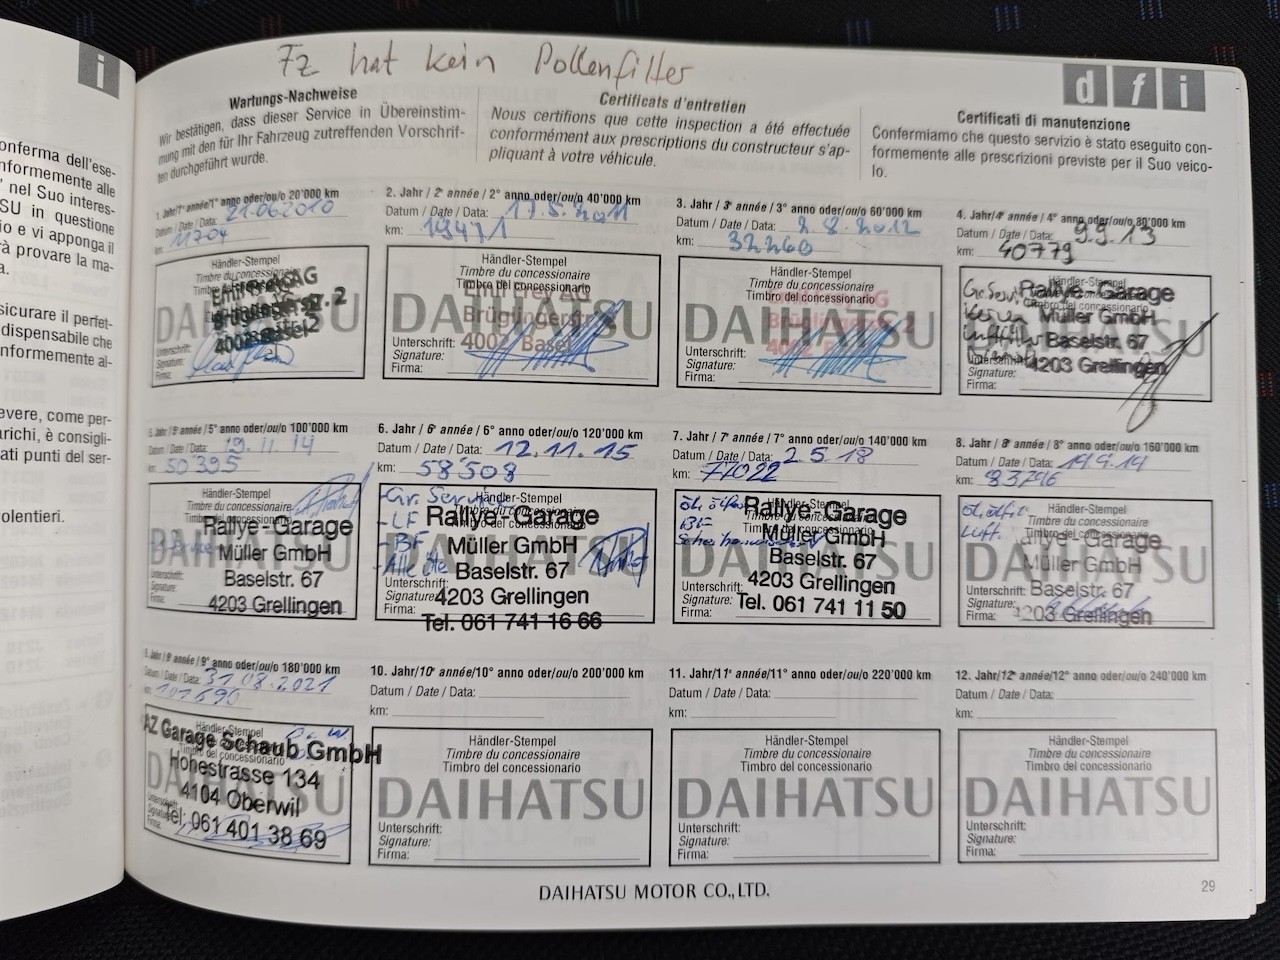 i
onferma dell'ese-
nformemente alle
nel Suo interes-
SU in questione
io e vi apponga il
rà provare la ma-
a.
sicurare il perfet-
dispensabile che
nformemente al-
evere, come per-
arichi, è consigli-
ati punti del ser-
olentieri.
Fz hat kein Pollenfilter
d f i
Wartungs-Nachweise
Wir bestätigen, dass dieser Service in Übereinstim-
mung mit den für Ihr Fahrzeug zutreffenden Vorschrif-
ten durchgeführt wurde.
Certificats d'entretien
Nous certifions que cette inspection a été effectuée
conformément aux prescriptions du constructeur s'ap-
pliquant à votre véhicule.
Certificati di manutenzione
Confermiamo che questo servizio è stato eseguito con-
formemente alle prescrizioni previste per il Suo veico-
lo.
1. Jahr/1e année/1° anno oder/ou/o 20'000 km
Datum / Date / Data: 21.06.2010
km: 11704
Händler-Stempel
Timbre du concessionaire
Timbro del concessionario
Emil Frey AG
Brüglingerstr. 2
4002 Basel
DAIHATSU
Unterschrift:
Signature:
Firma:
2. Jahr / 2e année / 2° anno oder/ou/o 40'000 km
Datum / Date / Data: 17.5.2011
km: 19471
Händler-Stempel
Timbre du concessionaire
Timbro del concessionario
Emil Frey AG
Brüglingerstr. 2
4002 Basel
DAIHATSU
Unterschrift:
Signature:
Firma:
3. Jahr / 3e année / 3° anno oder/ou/o 60'000 km
Datum / Date / Data: 2.8.2012
km: 32260
Händler-Stempel
Timbre du concessionaire
Timbro del concessionario
AG
Brüglingerstr. 2
4002
DAIHATSU
Unterschrift:
Signature:
Firma:
4. Jahr/4e année / 4° anno oder/ou/o 80'000 km
Datum / Date / Data: 9.9.13
km: 40779
Händler-Stempel
Timbre du concessionaire
Timbro del concessionario
Rallye-Garage
Müller GmbH
Baselstr. 67
4203 Grellingen
DAIHATSU
Unterschrift:
Signature:
Firma:
5. Jahr / 5e année / 5° anno oder/ou/o 100'000 km
Datum / Date / Data: 19.11.14
km: 50395
Händler-Stempel
Timbre du concessionaire
Timbro del concessionario
Rallye-Garage
Müller GmbH
Baselstr. 67
4203 Grellingen
DAIHATSU
Unterschrift:
Signature:
Firma:
6. Jahr / 6e année / 6° anno oder/ou/o 120'000 km
Datum / Date / Data: 12.11.15
km: 58508
Händler-Stempel
Timbre du concessionaire
Timbro del concessionario
-Gr. Service
-LF
-BF
-Alle Öle
Rallye-Garage
Müller GmbH
Baselstr. 67
4203 Grellingen
Tel. 061 741 16 66
DAIHATSU
Unterschrift:
Signature:
Firma:
7. Jahr / 7e année / 7° anno oder/ou/o 140'000 km
Datum / Date / Data: 2.5.18
km: 77022
Händler-Stempel
Timbre du concessionaire
Timbro del concessionario
BF
Rallye-Garage
Müller GmbH
Baselstr. 67
4203 Grellingen
Tel. 061 741 11 50
DAIHATSU
Unterschrift:
Signature:
Firma:
8. Jahr / 8e année / 8° anno oder/ou/o 160'000 km
Datum / Date / Data:
km: 83746
Händler-Stempel
Timbre du concessionaire
Timbro del concessionario
Luft.
Rallye-Garage
Müller GmbH
Baselstr. 67
4203 Grellingen
DAIHATSU
Unterschrift:
Signature:
Firma:
9. Jahr / 9e année / 9° anno oder/ou/o 180'000 km
Datum / Date / Data: 31.08.2021
km: 101690
Händler-Stempel
Timbre du concessionaire
Timbro del concessionario
AZ Garage Schaub GmbH
Hohestrasse 134
4104 Oberwil
Tel: 061 401 38 69
DAIHATSU
Unterschrift:
Signature:
Firma:
10. Jahr/10e année/10° anno oder/ou/o 200'000 km
Datum / Date / Data:
km:
Händler-Stempel
Timbre du concessionaire
Timbro del concessionario
DAIHATSU
Unterschrift:
Signature:
Firma:
11. Jahr/11e année/11° anno oder/ou/o 220'000 km
Datum / Date / Data:
km:
Händler-Stempel
Timbre du concessionaire
Timbro del concessionario
DAIHATSU
Unterschrift:
Signature:
Firma:
12. Jahr/12e année/12° anno oder/ou/o 240'000 km
Datum / Date / Data:
km:
Händler-Stempel
Timbre du concessionaire
Timbro del concessionario
DAIHATSU
Unterschrift:
Signature:
Firma:
DAIHATSU MOTOR CO., LTD.
29